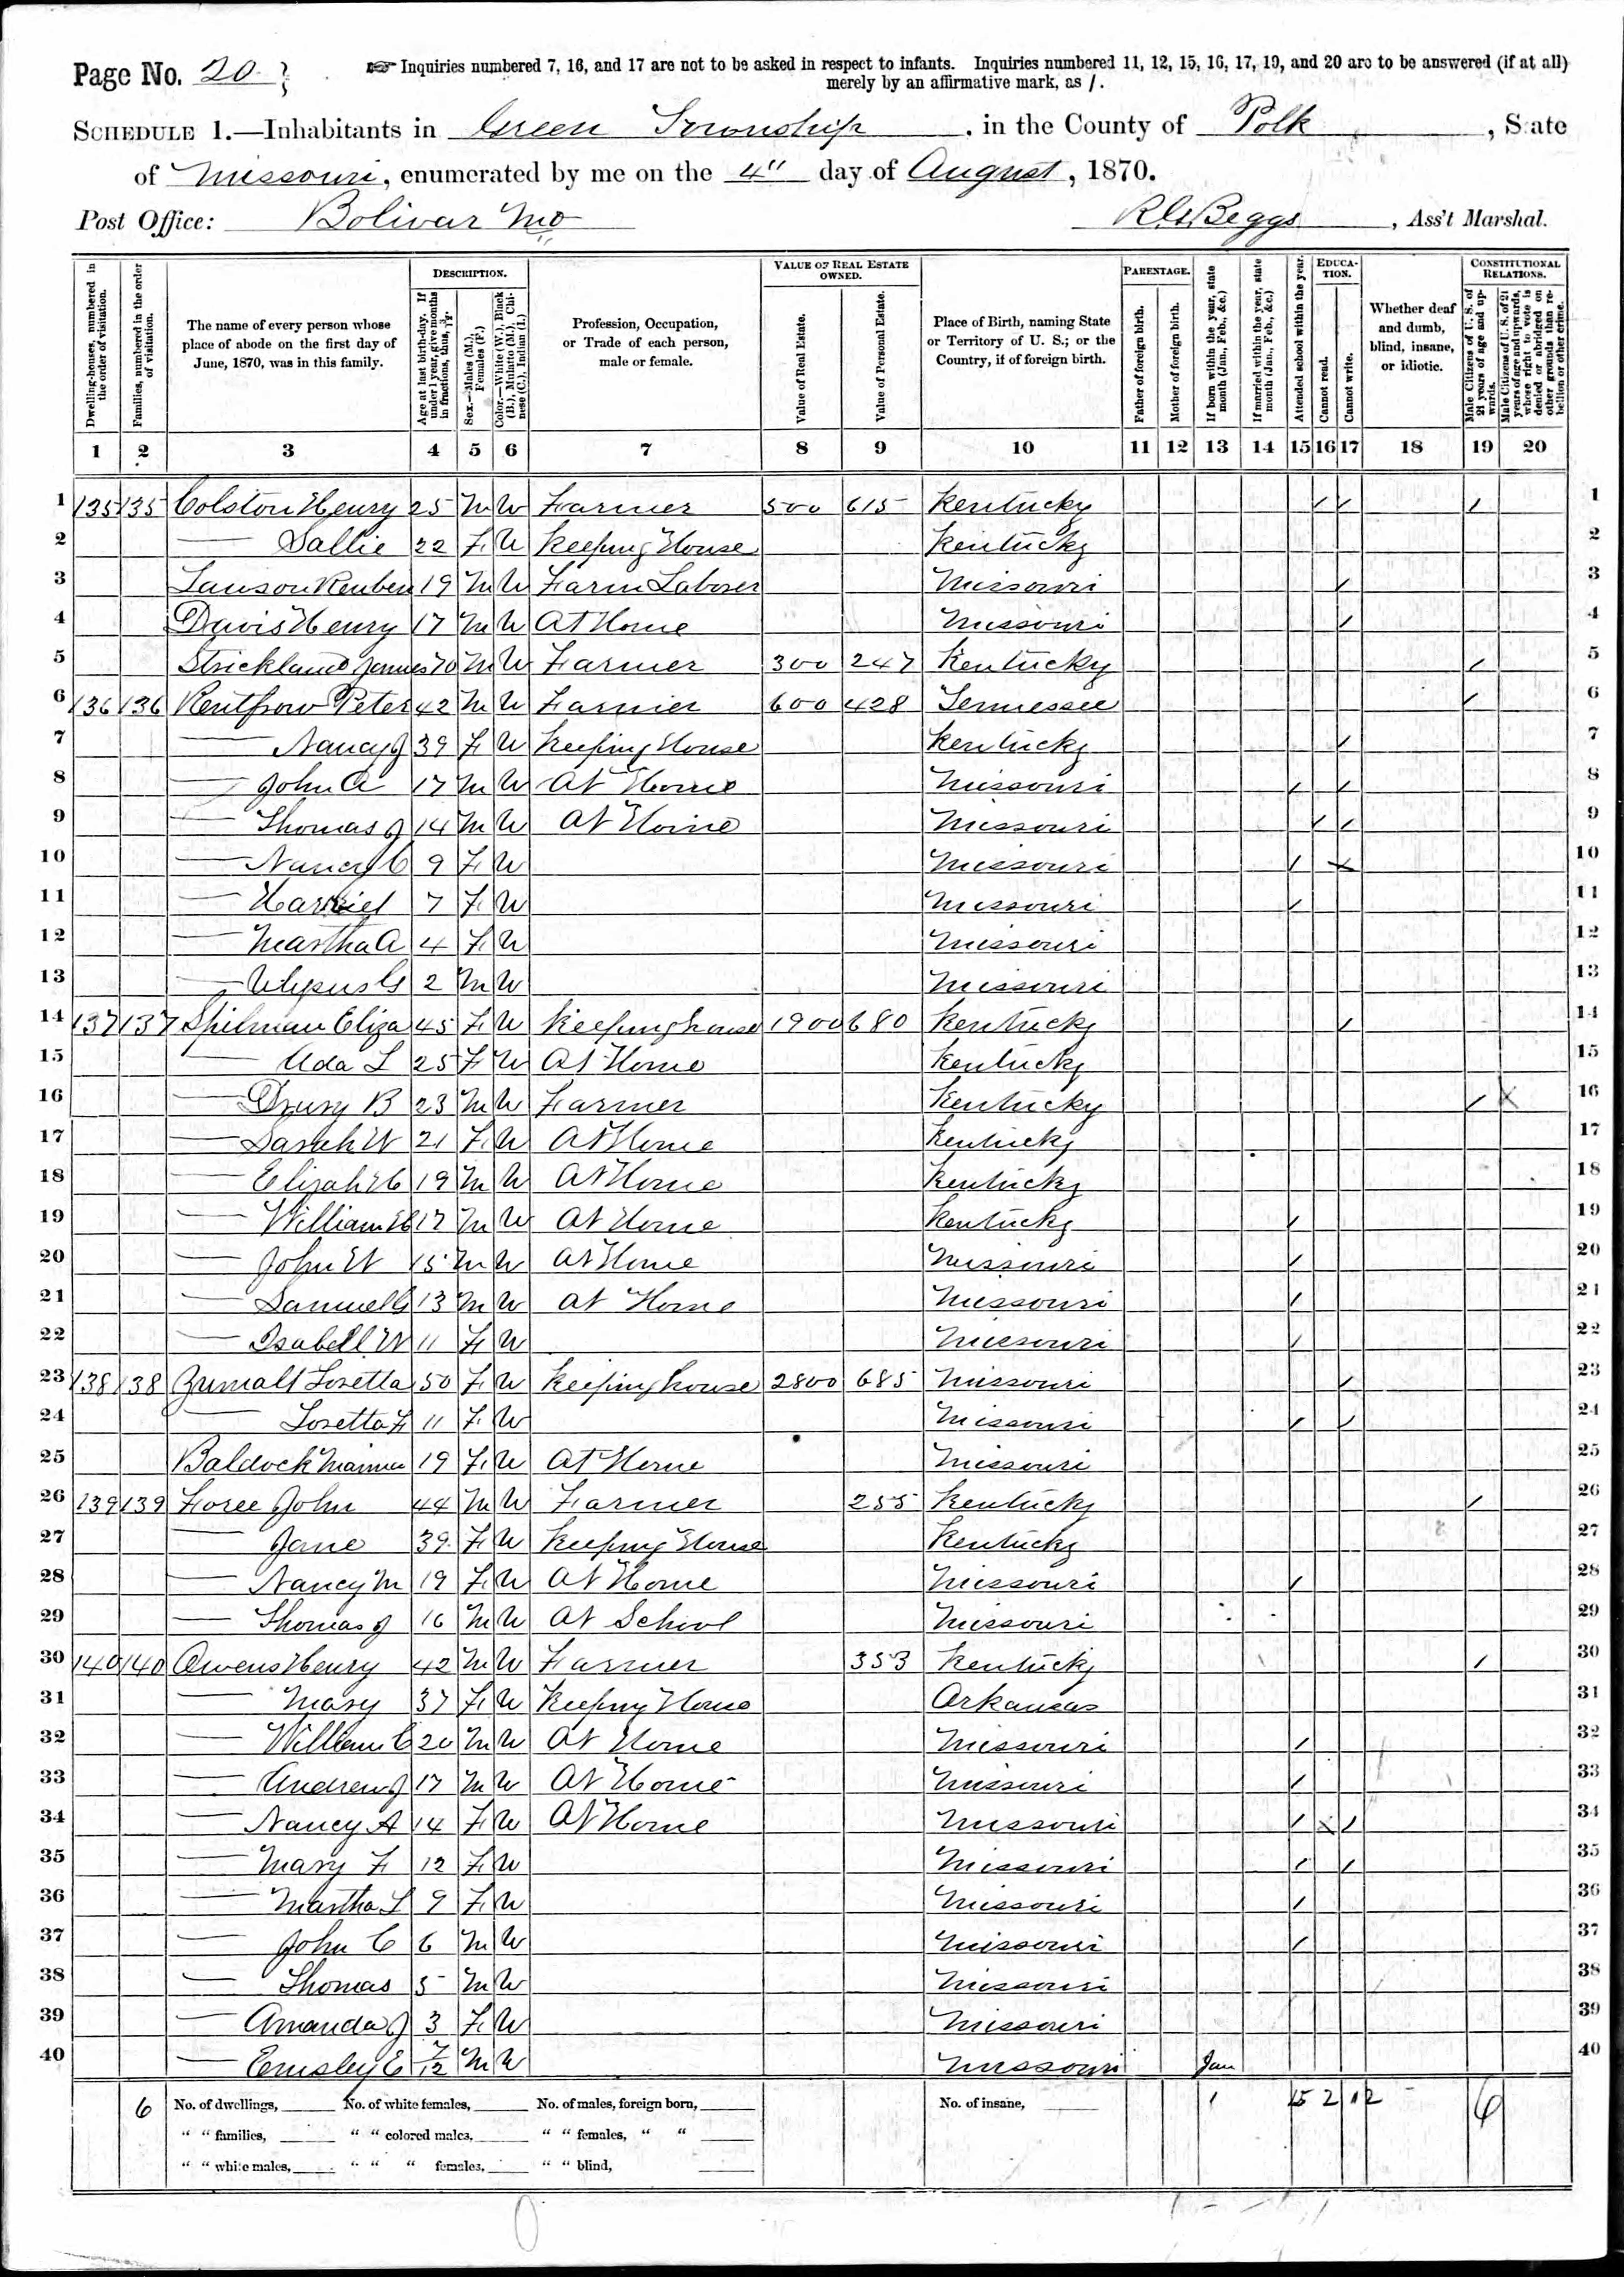 Page No. 20
Inquiries numbered 7, 16, and 17 are not to be asked in respect to infants. Inquiries numbered 11, 12, 15, 16, 17, 19, and 20 are to be answered (if at all)
merely by an affirmative mark, as /.
SCHEDULE 1.—Inhabitants in Green Township, in the County of Polk, State
of Missouri, enumerated by me on the 4" day of August, 1870.
Post Office: Bolivar Mo
Beggs, Ass't Marshal.
Dwelling-houses, numbered in the order of visitation.
Families, numbered in the order of visitation.
The name of every person whose place of abode on the first day of June, 1870, was in this family.
DESCRIPTION.
Age at last birth-day. If under 1 year, give months in fractions, thus, 3/12.
Sex.—Males (M.), Females (F.)
Color.—White (W.), Black (B.), Mulatto (M.), Chinese (C.), Indian (I.)
Profession, Occupation, or Trade of each person, male or female.
VALUE OF REAL ESTATE OWNED.
Value of Real Estate.
Value of Personal Estate.
Place of Birth, naming State or Territory of U. S.; or the Country, if of foreign birth.
PARENTAGE.
Father of foreign birth.
Mother of foreign birth.
If born within the year, state month (Jan., Feb., &c.)
If married within the year, state month (Jan., Feb., &c.)
Attended school within the year.
EDUCATION.
Cannot read.
Cannot write.
Whether deaf and dumb, blind, insane, or idiotic.
CONSTITUTIONAL RELATIONS.
Male Citizens of U. S. of 21 years of age and upwards.
Male Citizens of U. S. of 21 years of age and upwards, whose right to vote is denied or abridged on other grounds than rebellion or other crime.
1 2 3 4 5 6 7 8 9 10 11 12 13 14 15 16 17 18 19 20
1 135 135 Colston Henry 25 M W Farmer 500 615 Kentucky / / / 1
2 — Sallie 22 F W Keeping House Kentucky 2
3 Lawson Reuben 19 M W Farm Laborer Missouri / 3
4 Davis Henry 17 M W At Home Missouri / 4
5 Strickland James 70 M W Farmer 300 247 Kentucky / 5
6 136 136 Rentfrow Peter 42 M W Farmer 600 428 Tennessee / 6
7 — Nancy J 39 F W Keeping House Kentucky / 7
8 — John A 17 M W At Home Missouri / / 8
9 — Thomas J 14 M W At Home Missouri / / 9
10 — Nancy C 9 F W Missouri / 10
11 — Harriet 7 F W Missouri / 11
12 — Martha A 4 F W Missouri 12
13 — 2 M W Missouri 13
14 137 137 Spilman Eliza 45 F W Keeping house 1900 680 Kentucky / 14
15 — Ada L 25 F W At Home Kentucky 15
16 — Drury B 23 M W Farmer Kentucky / X 16
17 — Sarah W 21 F W At Home Kentucky 17
18 — 19 M W At Home Kentucky 18
19 — William H 17 M W At Home Kentucky / 19
20 — John W 15 M W At Home Missouri / 20
21 — Samuel G 13 M W At Home Missouri / 21
22 — Isabell W 11 F W Missouri / 22
23 138 138 Zumalt Losetta 50 F W Keeping house 2800 685 Missouri / 23
24 — Losetta F 11 F W Missouri / / 24
25 Baldock 19 F W At Home Missouri 25
26 139 139 Foree John 44 M W Farmer 255 Kentucky / 26
27 — Jane 39 F W Keeping House Kentucky 27
28 — Nancy M 19 F W At Home Missouri / 28
29 — Thomas J 16 M W At School Missouri 29
30 140 140 Owens Henry 42 M W Farmer 353 Kentucky / 30
31 — Mary 37 F W Keeping House Arkansas 31
32 — William C 20 M W At Home Missouri / 32
33 — Andrew J 17 M W At Home Missouri / 33
34 — Nancy A 14 F W At Home Missouri / X / 34
35 — Mary F 12 F W Missouri / / 35
36 — Martha L 9 F W Missouri / 36
37 — John C 6 M W Missouri / 37
38 — Thomas 5 M W Missouri 38
39 — Amanda J 3 F W Missouri 39
40 — Emsley E 7/12 M W Missouri Jan 40
6 No. of dwellings, No. of white females, No. of males, foreign born, No. of insane, 1 15 2 12 6
" " families, " " colored males, " " females, " "
" " white males, " " " females, " " blind,